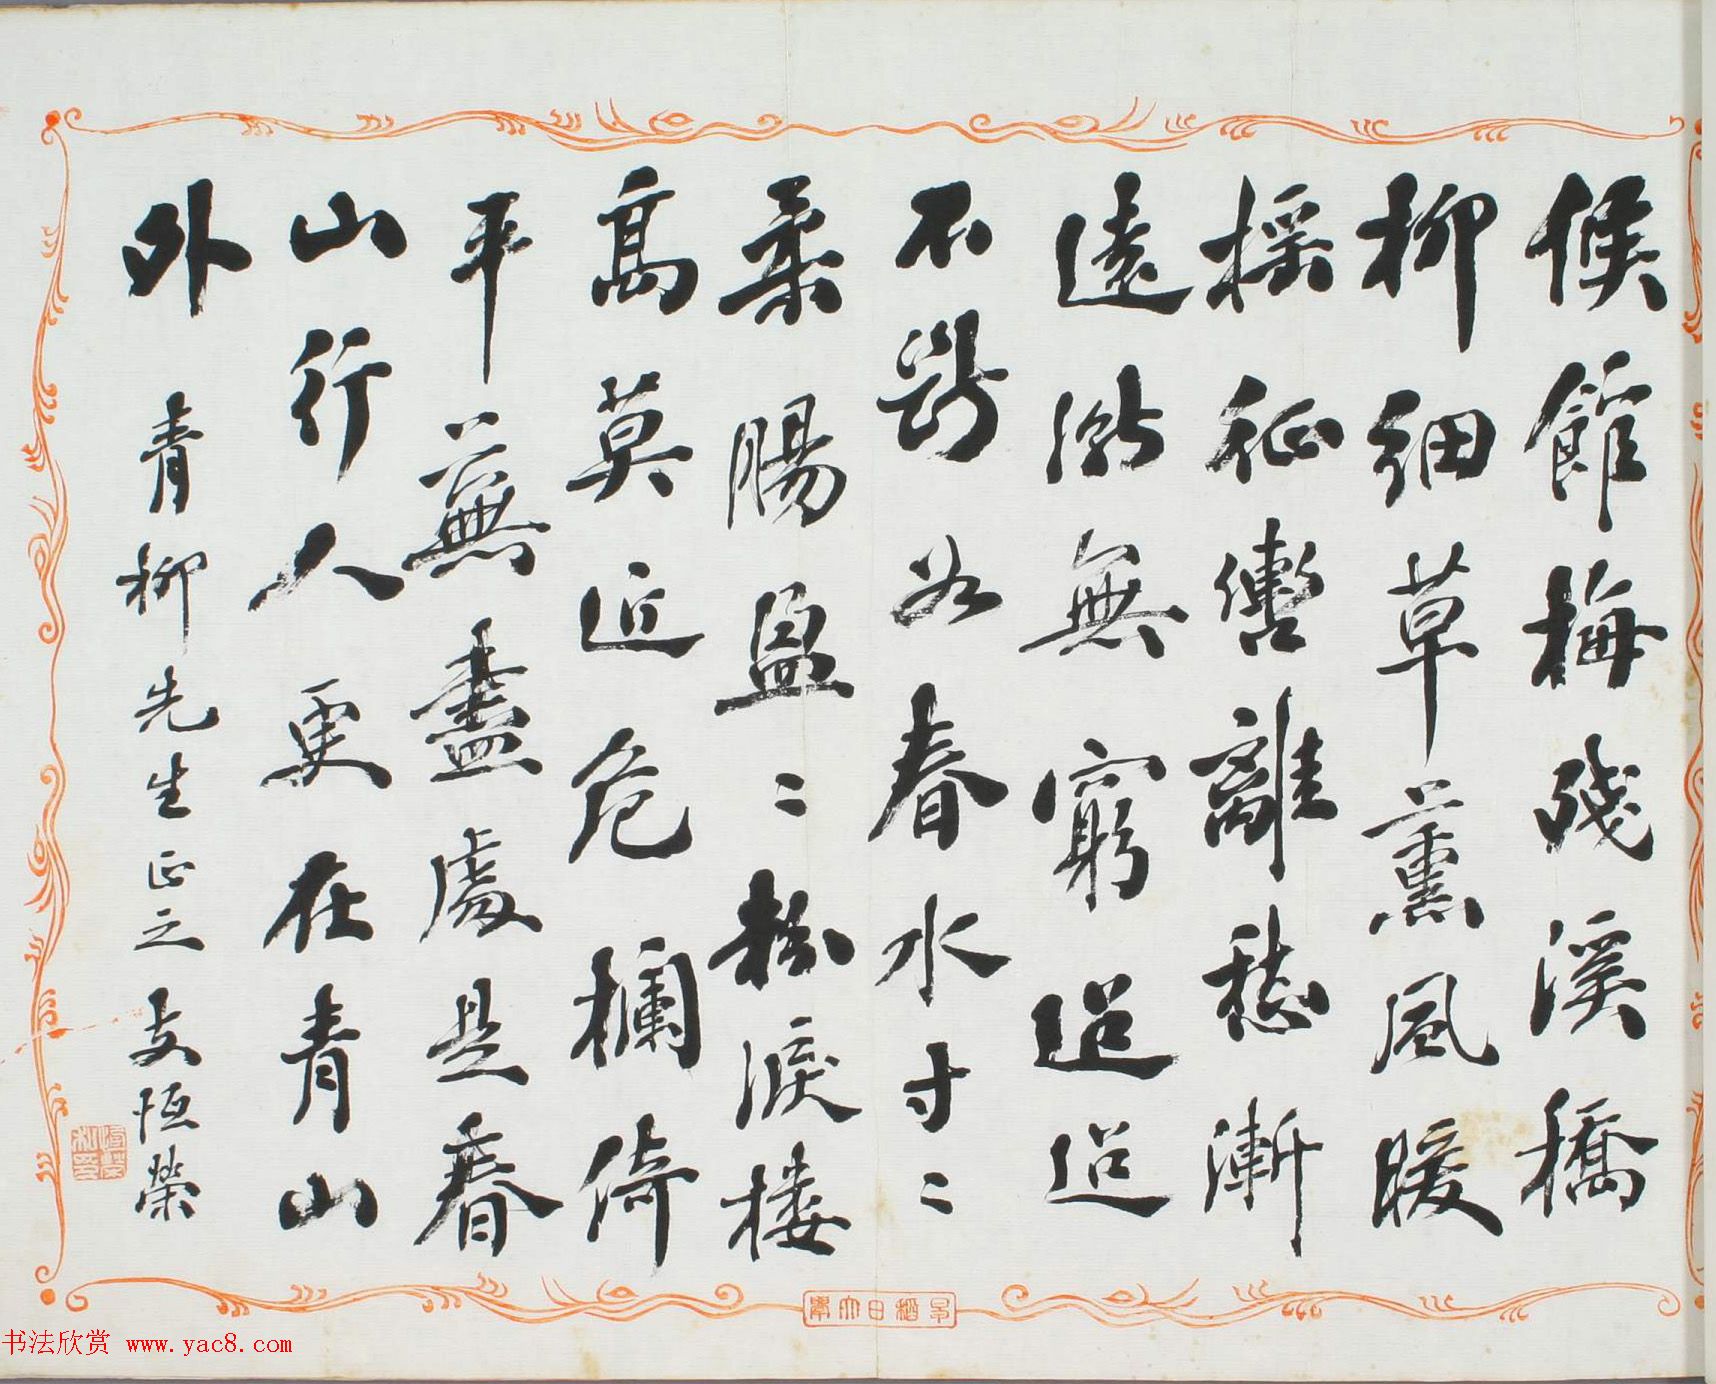 候館梅残溪橋
柳細草薰風暖
摇征轡離愁漸
遠漸無窮迢迢
不斷如春水寸〻
柔腸盈〻粉淚樓
高莫近危欄倚
平蕪盡處是春
山行人更在青山
外 青柳先生正之 支恒榮
书法欣赏 www.yac8.com